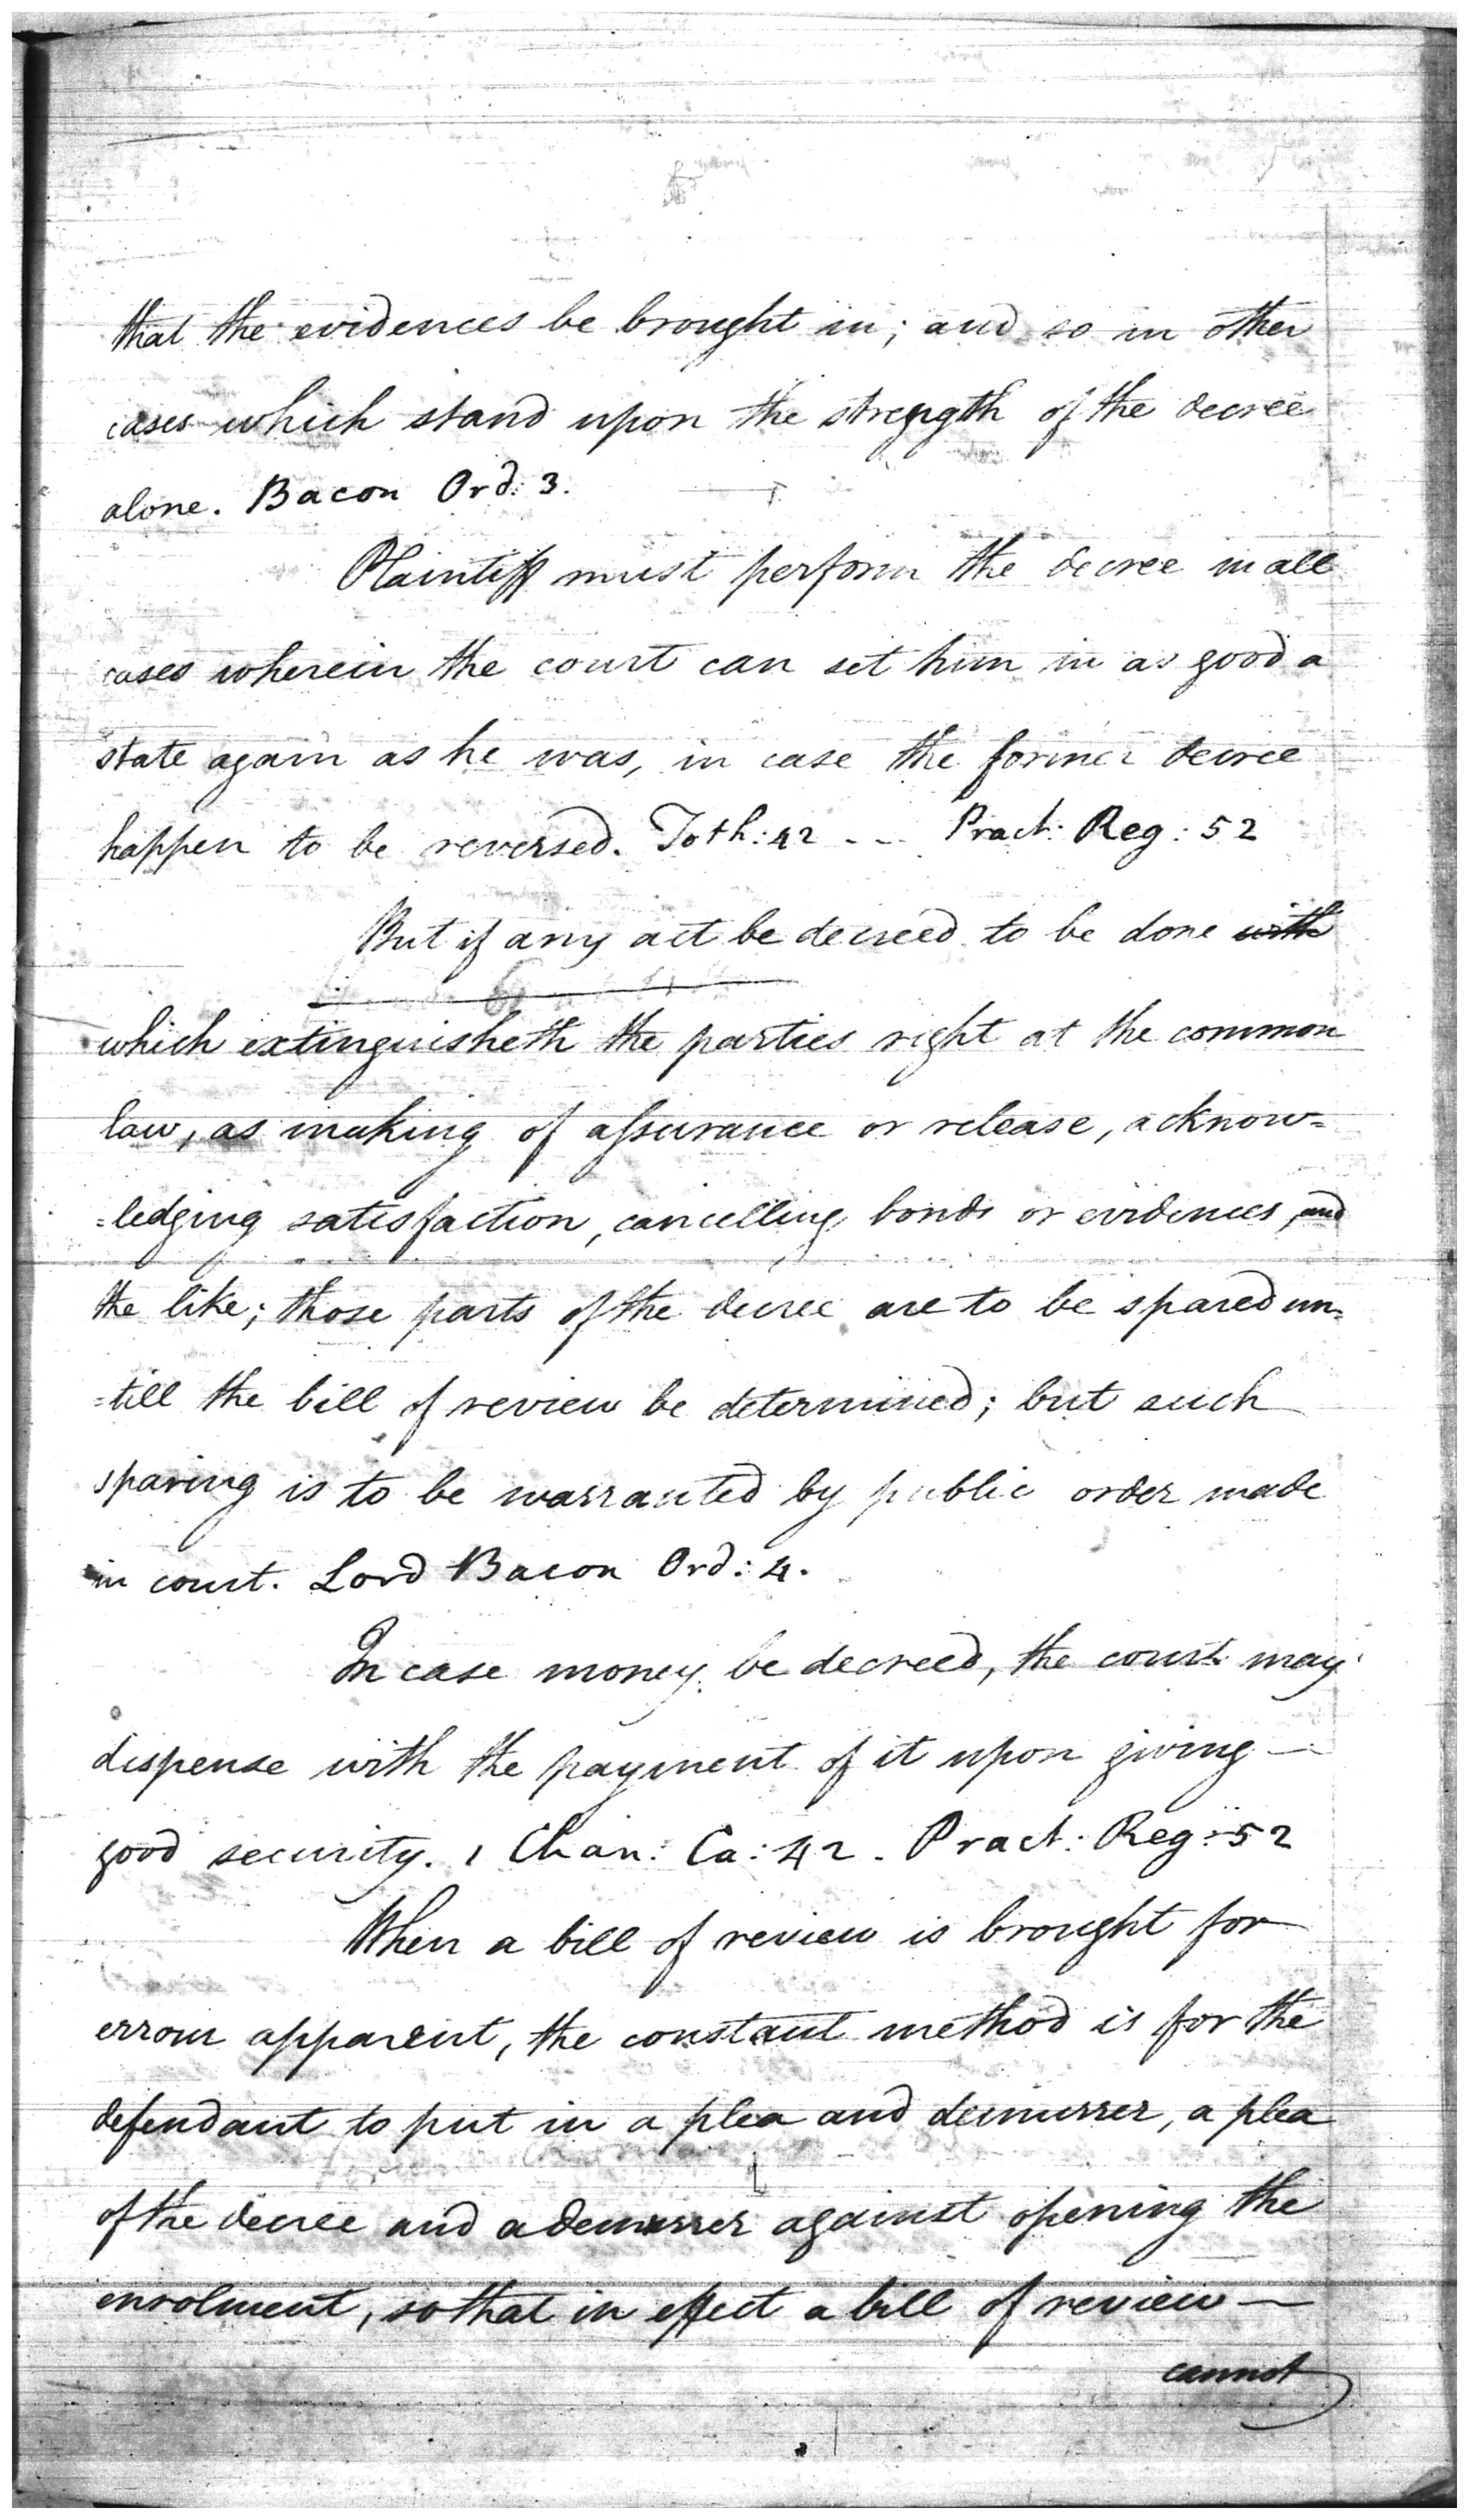 that the evidences be brought in; and so in other
cases which stand upon the strength of the decree
alone. Bacon Ord: 3.
Plaintiff must perform the decree in all
cases wherein the court can set him in as good a
state again as he was, in case the former decree
happen to be reversed. Toth: 42 - - - Pract: Reg: 52
But if any act be decreed to be done with
which extinguisheth the parties right at the common
law, as making of assurance or release, acknow=
=ledging satisfaction, cancelling bonds or evidences, and
the like; those parts of the decree are to be spared un=
=till the bill of review be determined; but such
sparing is to be warranted by public order made
in court. Lord Bacon Ord: 4.
In case money be decreed, the court may
dispense with the payment of it upon giving —
good security. 1 Chan: Ca: 42. Pract: Reg: 52
When a bill of review is brought for
errour apparent, the constant method is for the
defendant to put in a plea and demurrer, a plea
of the decree and a demurrer against opening the
enrolment, so that in effect a bill of review —
cannot